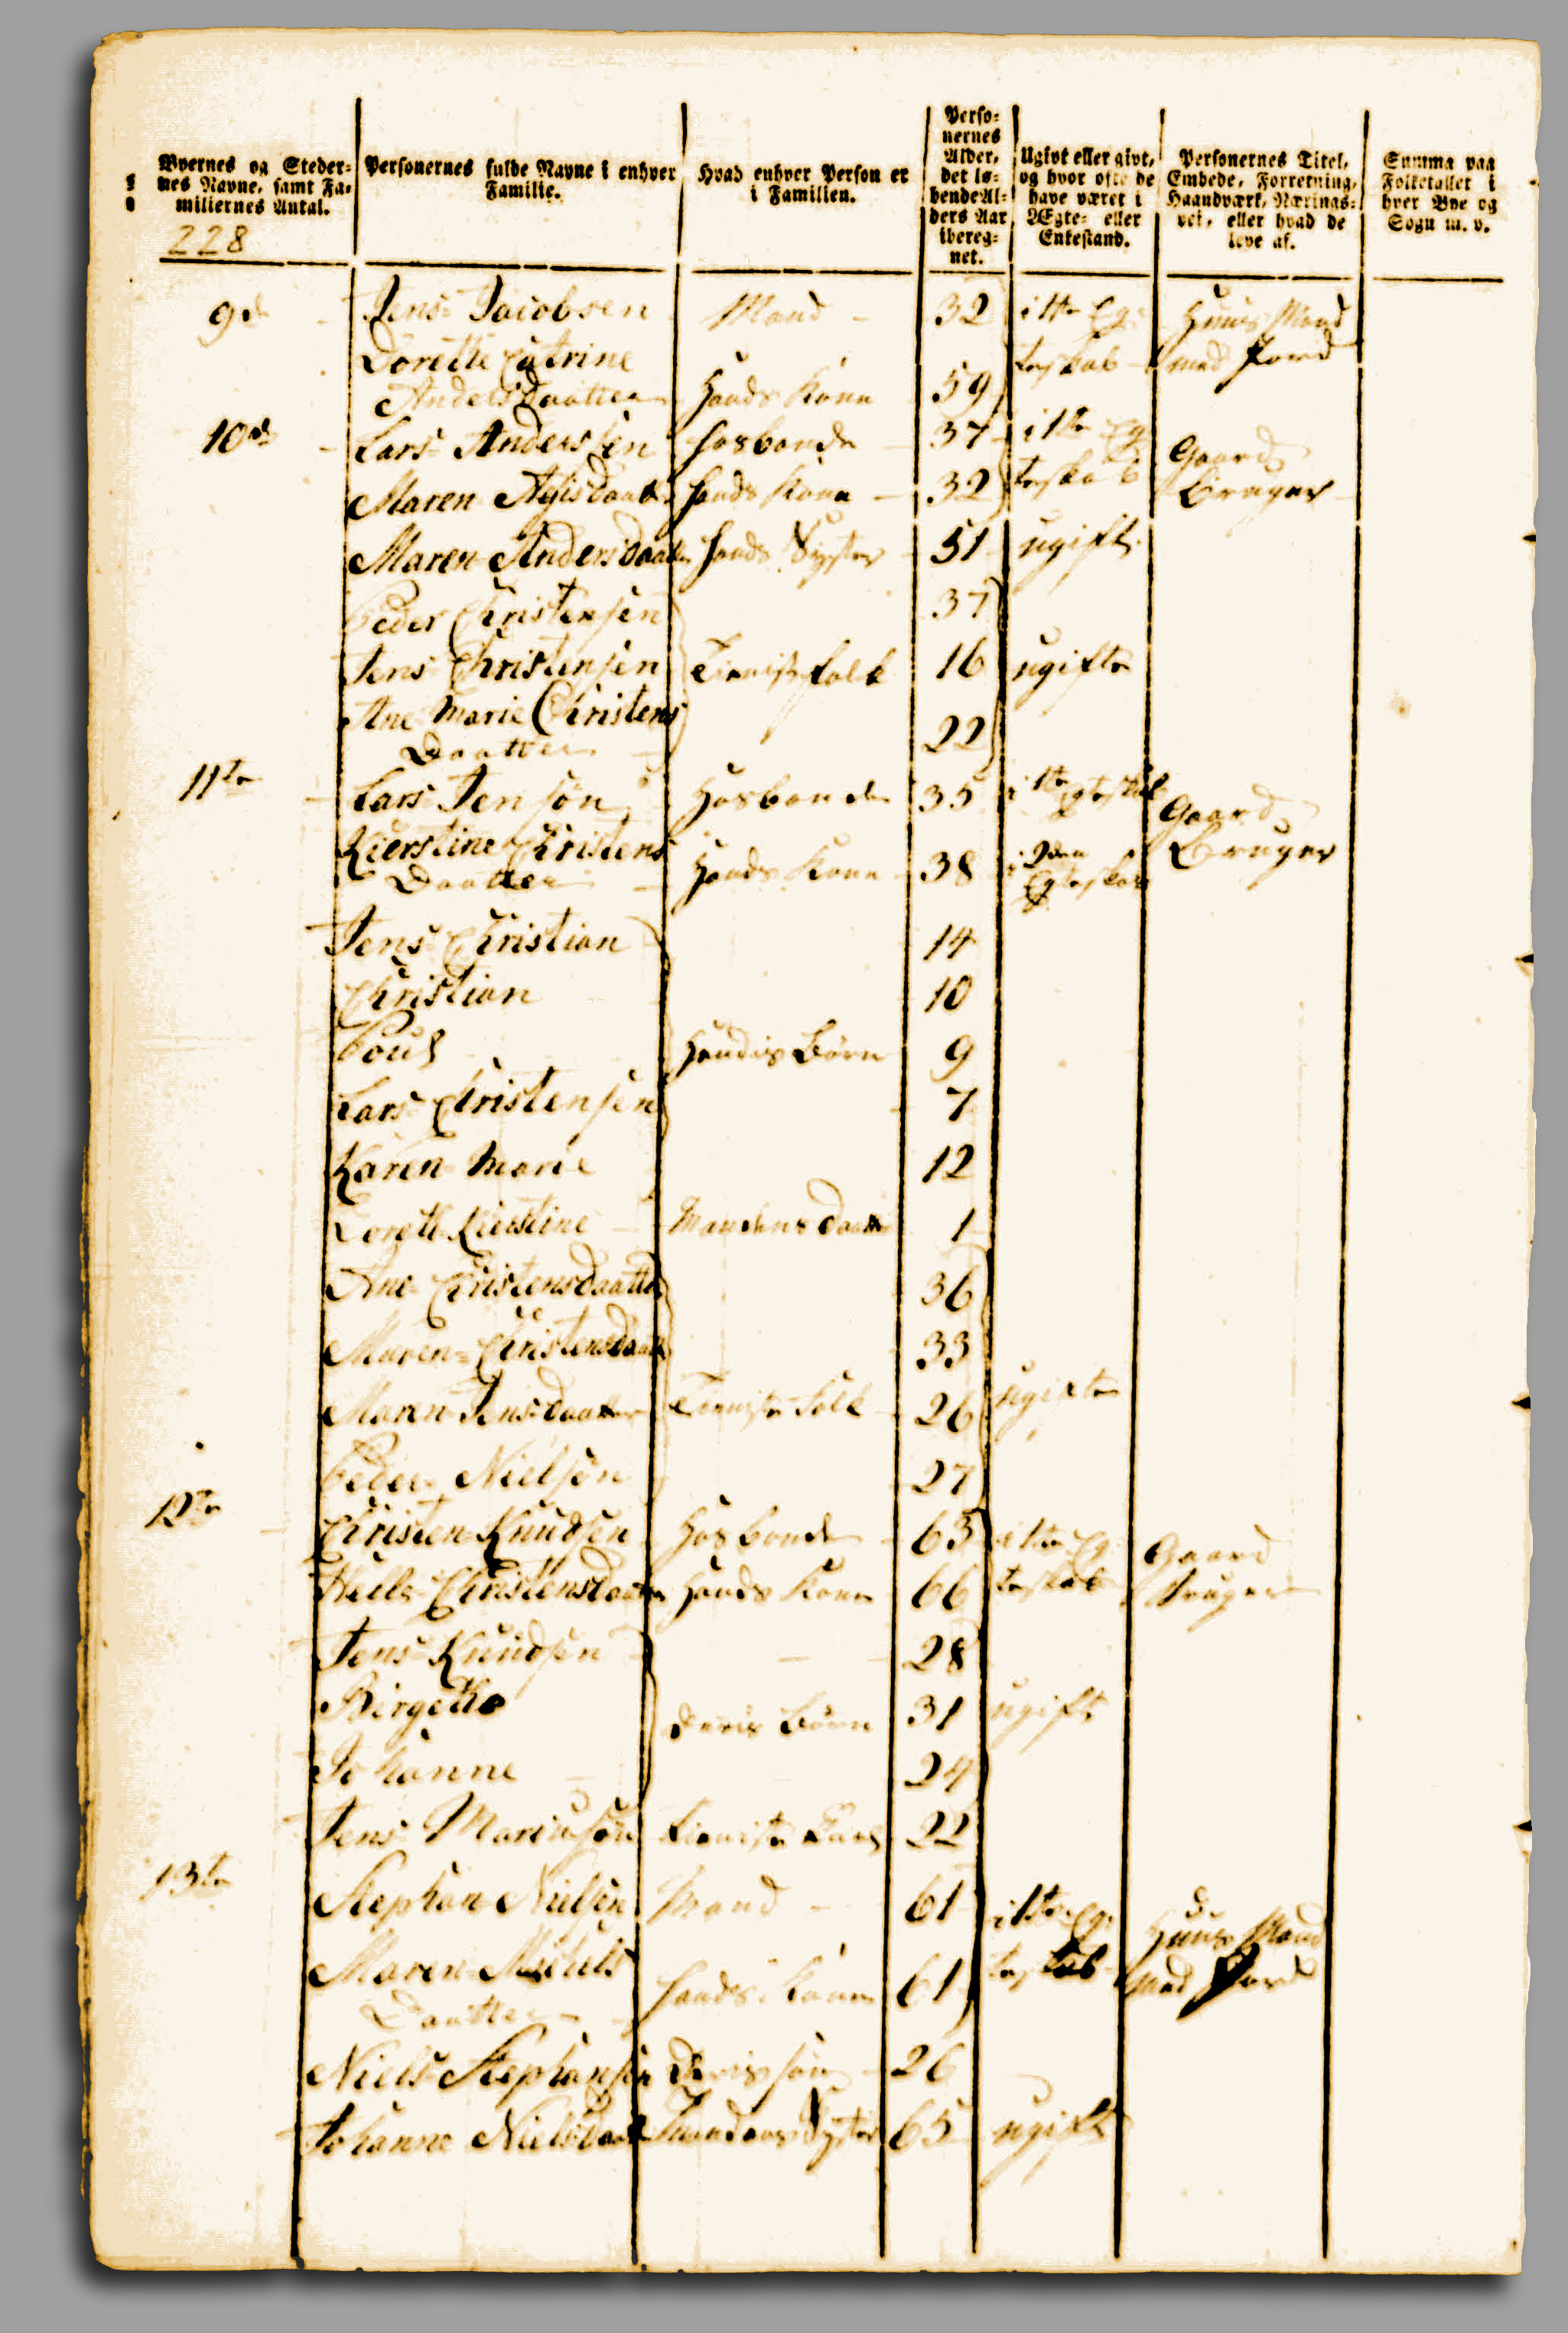 Byernes og Steder-
nes Navne, samt Fa-
miliernes Antal.
228
Personernes fulde Navne i enhver
Familie.
Hvad enhver Person er
i Familien.
Perso-
nernes
Alder,
det lø-
bende Al-
ders Aar
ibereg-
net.
Ugivt eller givt,
og hvor ofte de
have været i
Ægte- eller
Enkestand.
Personernes Titel,
Embede, Forretning,
Haandværk, Nærings-
vei, eller hvad de
leve af.
Summa paa
Folketallet i
hver Bye og
Sogn m. v.
9de Jens Jacobsen Mand 32 i 1te Eg- Huus Mand
Dorette Catrine teskab med Jord
Andersdaatter Hands Kone 59
10de Lars Andersen Hosbonde 37 i 1te Eg Gaard
Maren daat Hands Kone 32 teskab Bruger
Maren Andersdaatter Hands Syster 51 ugift
Peder Christensen 37
Jens Christensen Tieniste folk 16 ugifte
Ane Marie Christens
Daatter 22
11te Lars Jensøn Hosbonde 35 i 1te Egteskab Gaard
Kierstine Christens Bruger
Daatter Hands Kone 38 i 2den
Egteskab
Jens Christian 14
Christian 10
Poul Hendes Børn 9
Lars Christensen 7
Karen Marie 12
Doreth Kierstine Mandens Daatter 1
Ane Christensdaatter 36
Maren Christensdaat 33
Maren Jensdaatter Tieniste Folk 26 ugifte
Peder Nielsøn 27
12te Christen Knudsen Hosbonde 63 i 1te Eg Gaard
Helle Christensdaatter Hands Kone 66 teskab bruger
Jens Knudsen 28
Birgette Deris Børn 31 ugift
Johanne 24
Jens Tieniste Karl 22
13te Stephan Nielsen Mand 61 i 1te Eg- Huus Mand
Maren teskab med Jord
Daatter Hands Kone 61
Niels Stephansen Deris søn 26
Johanne Nielsdaat Mandens Syster 65 ugift